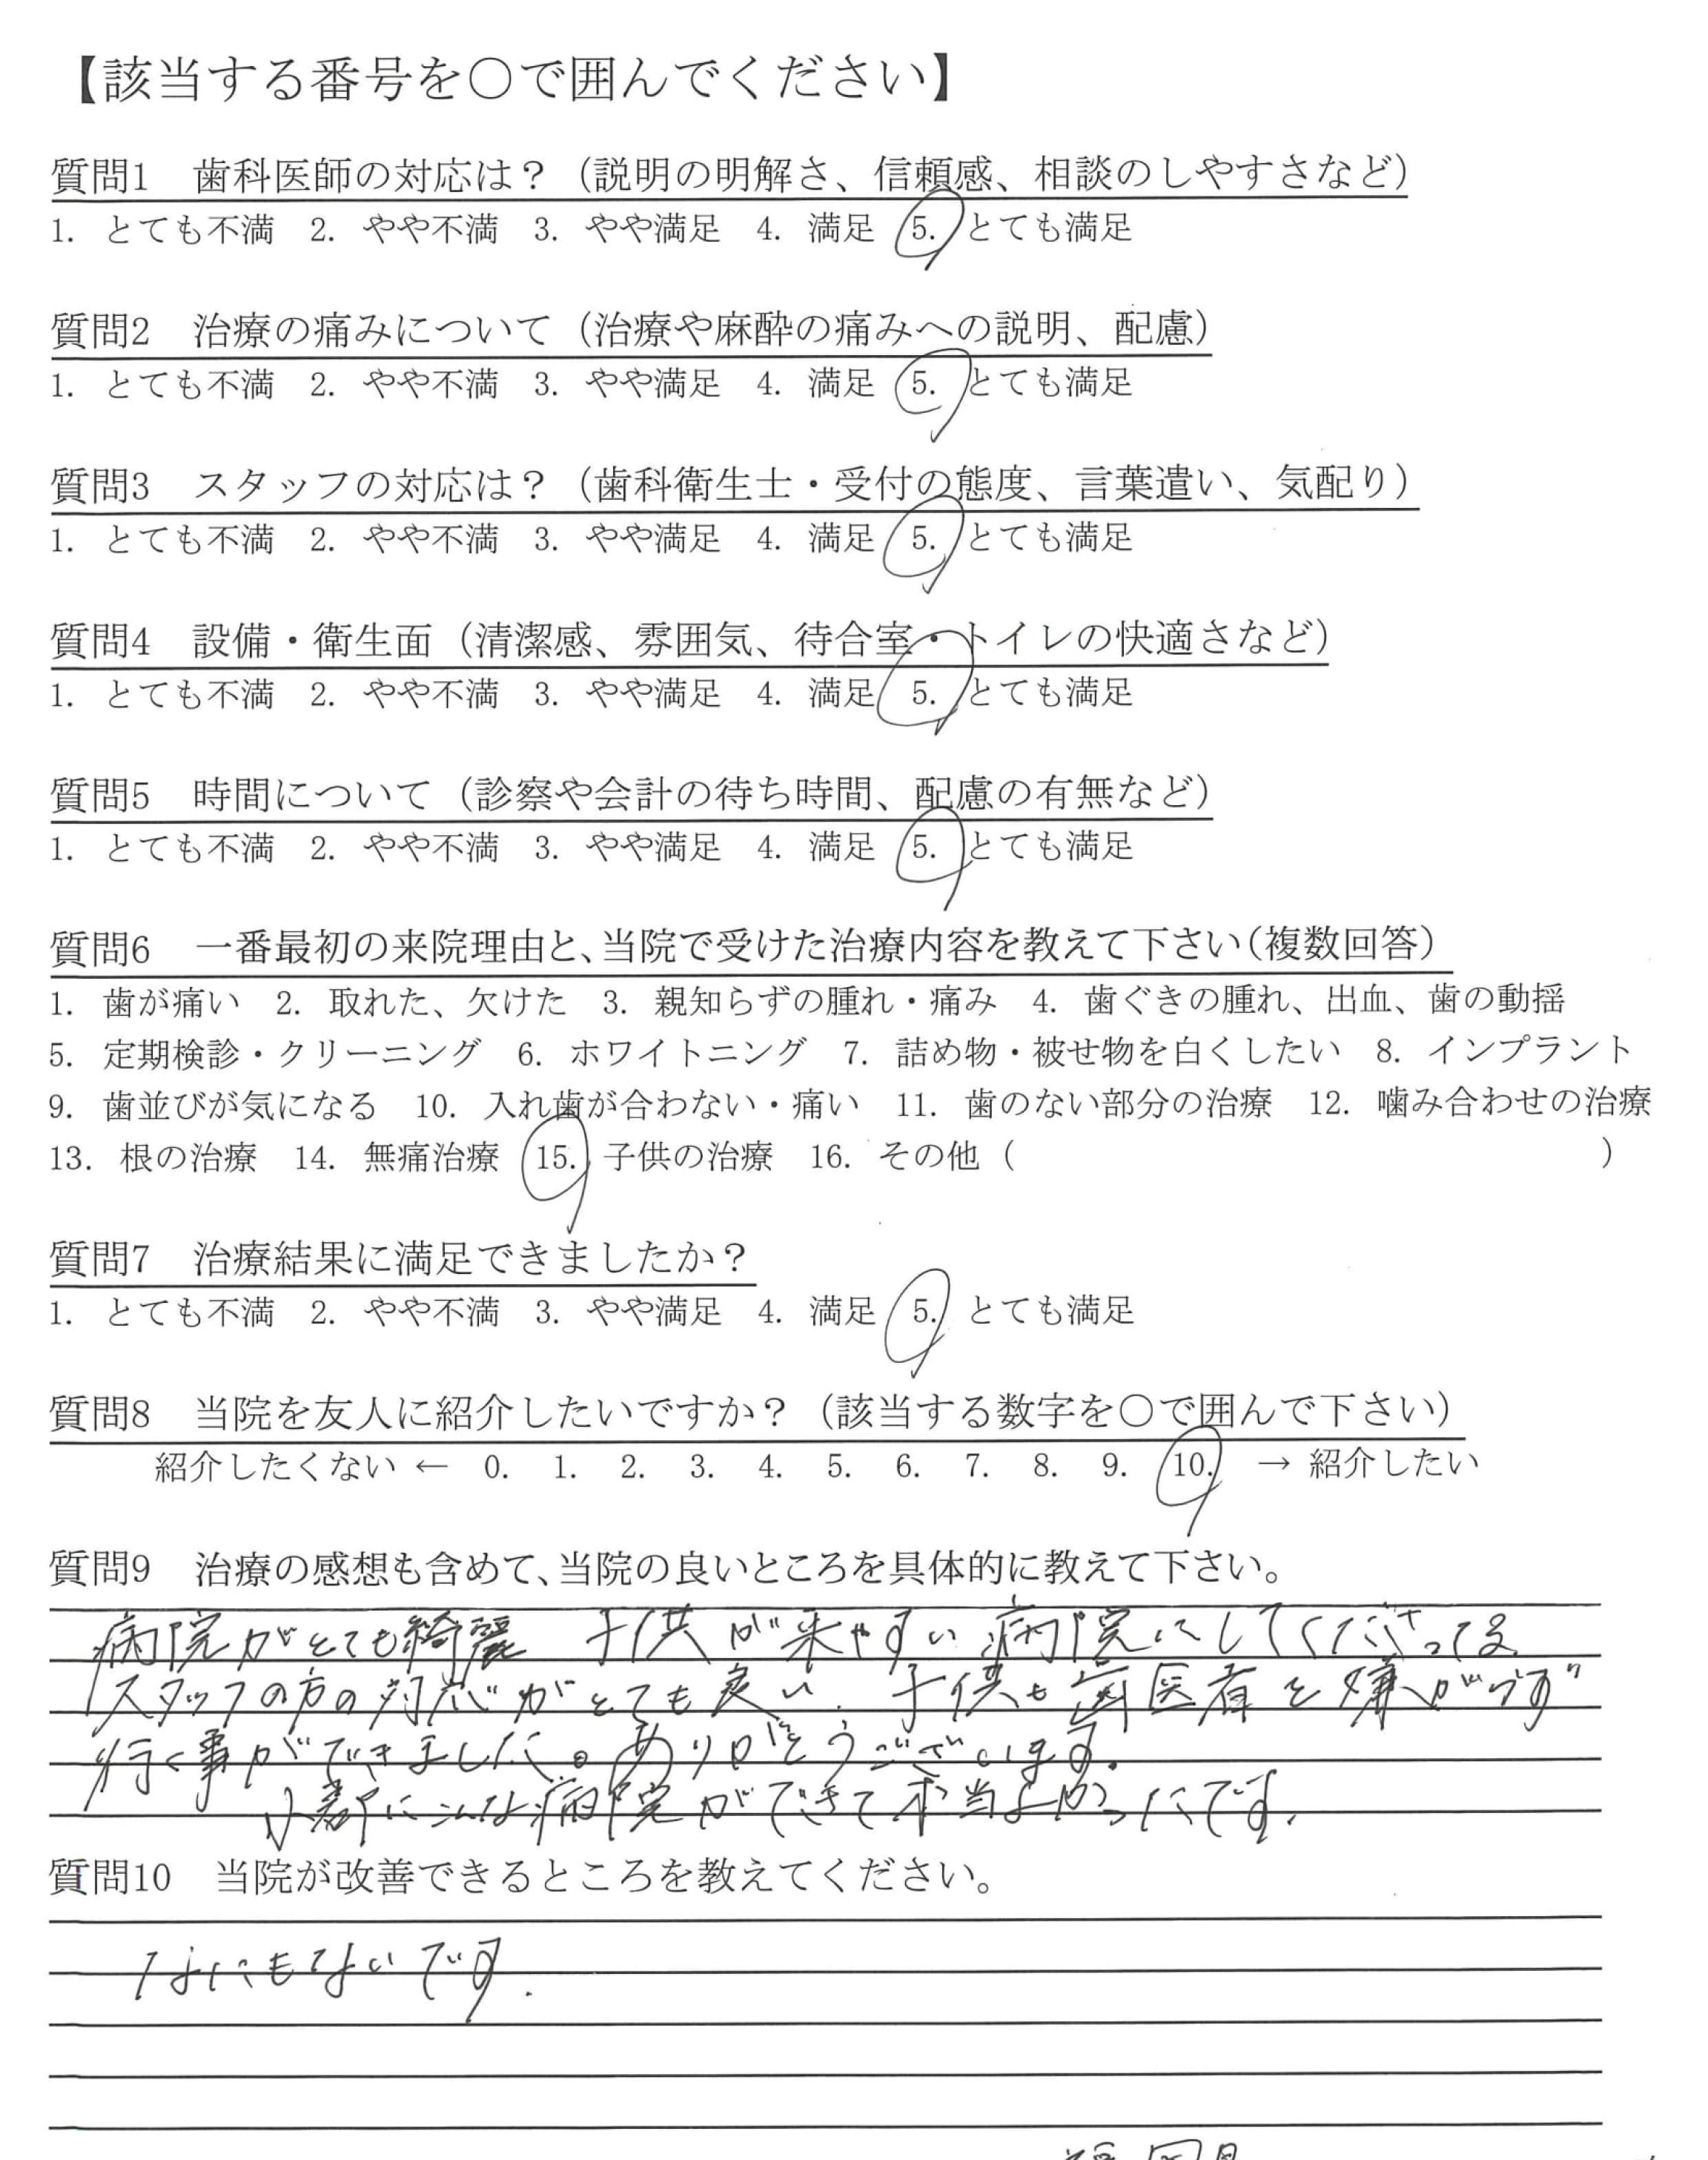 【該当する番号を○で囲んでください】
質問1　歯科医師の対応は？（説明の明解さ、信頼感、相談のしやすさなど）
1. とても不満　2. やや不満　3. やや満足　4. 満足　5. とても満足
質問2　治療の痛みについて（治療や麻酔の痛みへの説明、配慮）
1. とても不満　2. やや不満　3. やや満足　4. 満足　5. とても満足
質問3　スタッフの対応は？（歯科衛生士・受付の態度、言葉遣い、気配り）
1. とても不満　2. やや不満　3. やや満足　4. 満足　5. とても満足
質問4　設備・衛生面（清潔感、雰囲気、待合室・トイレの快適さなど）
1. とても不満　2. やや不満　3. やや満足　4. 満足　5. とても満足
質問5　時間について（診察や会計の待ち時間、配慮の有無など）
1. とても不満　2. やや不満　3. やや満足　4. 満足　5. とても満足
質問6　一番最初の来院理由と、当院で受けた治療内容を教えて下さい（複数回答）
1. 歯が痛い　2. 取れた、欠けた　3. 親知らずの腫れ・痛み　4. 歯ぐきの腫れ、出血、歯の動揺
5. 定期検診・クリーニング　6. ホワイトニング　7. 詰め物・被せ物を白くしたい　8. インプラント
9. 歯並びが気になる　10. 入れ歯が合わない・痛い　11. 歯のない部分の治療　12. 噛み合わせの治療
13. 根の治療　14. 無痛治療　15. 子供の治療　16. その他（　　　　）
質問7　治療結果に満足できましたか？
1. とても不満　2. やや不満　3. やや満足　4. 満足　5. とても満足
質問8　当院を友人に紹介したいですか？（該当する数字を○で囲んで下さい）
紹介したくない ← 0. 1. 2. 3. 4. 5. 6. 7. 8. 9. 10. → 紹介したい
質問9　治療の感想も含めて、当院の良いところを具体的に教えて下さい。
病院がとても綺麗　子供が来やすい病院にしてくださってる
スタッフの方の対応がとても良い．子供も歯医者を嫌がらず
行く事ができました。ありがとうございます．
小郡にこんな病院ができて本当よかったです．
質問10　当院が改善できるところを教えてください。
なにもないです．